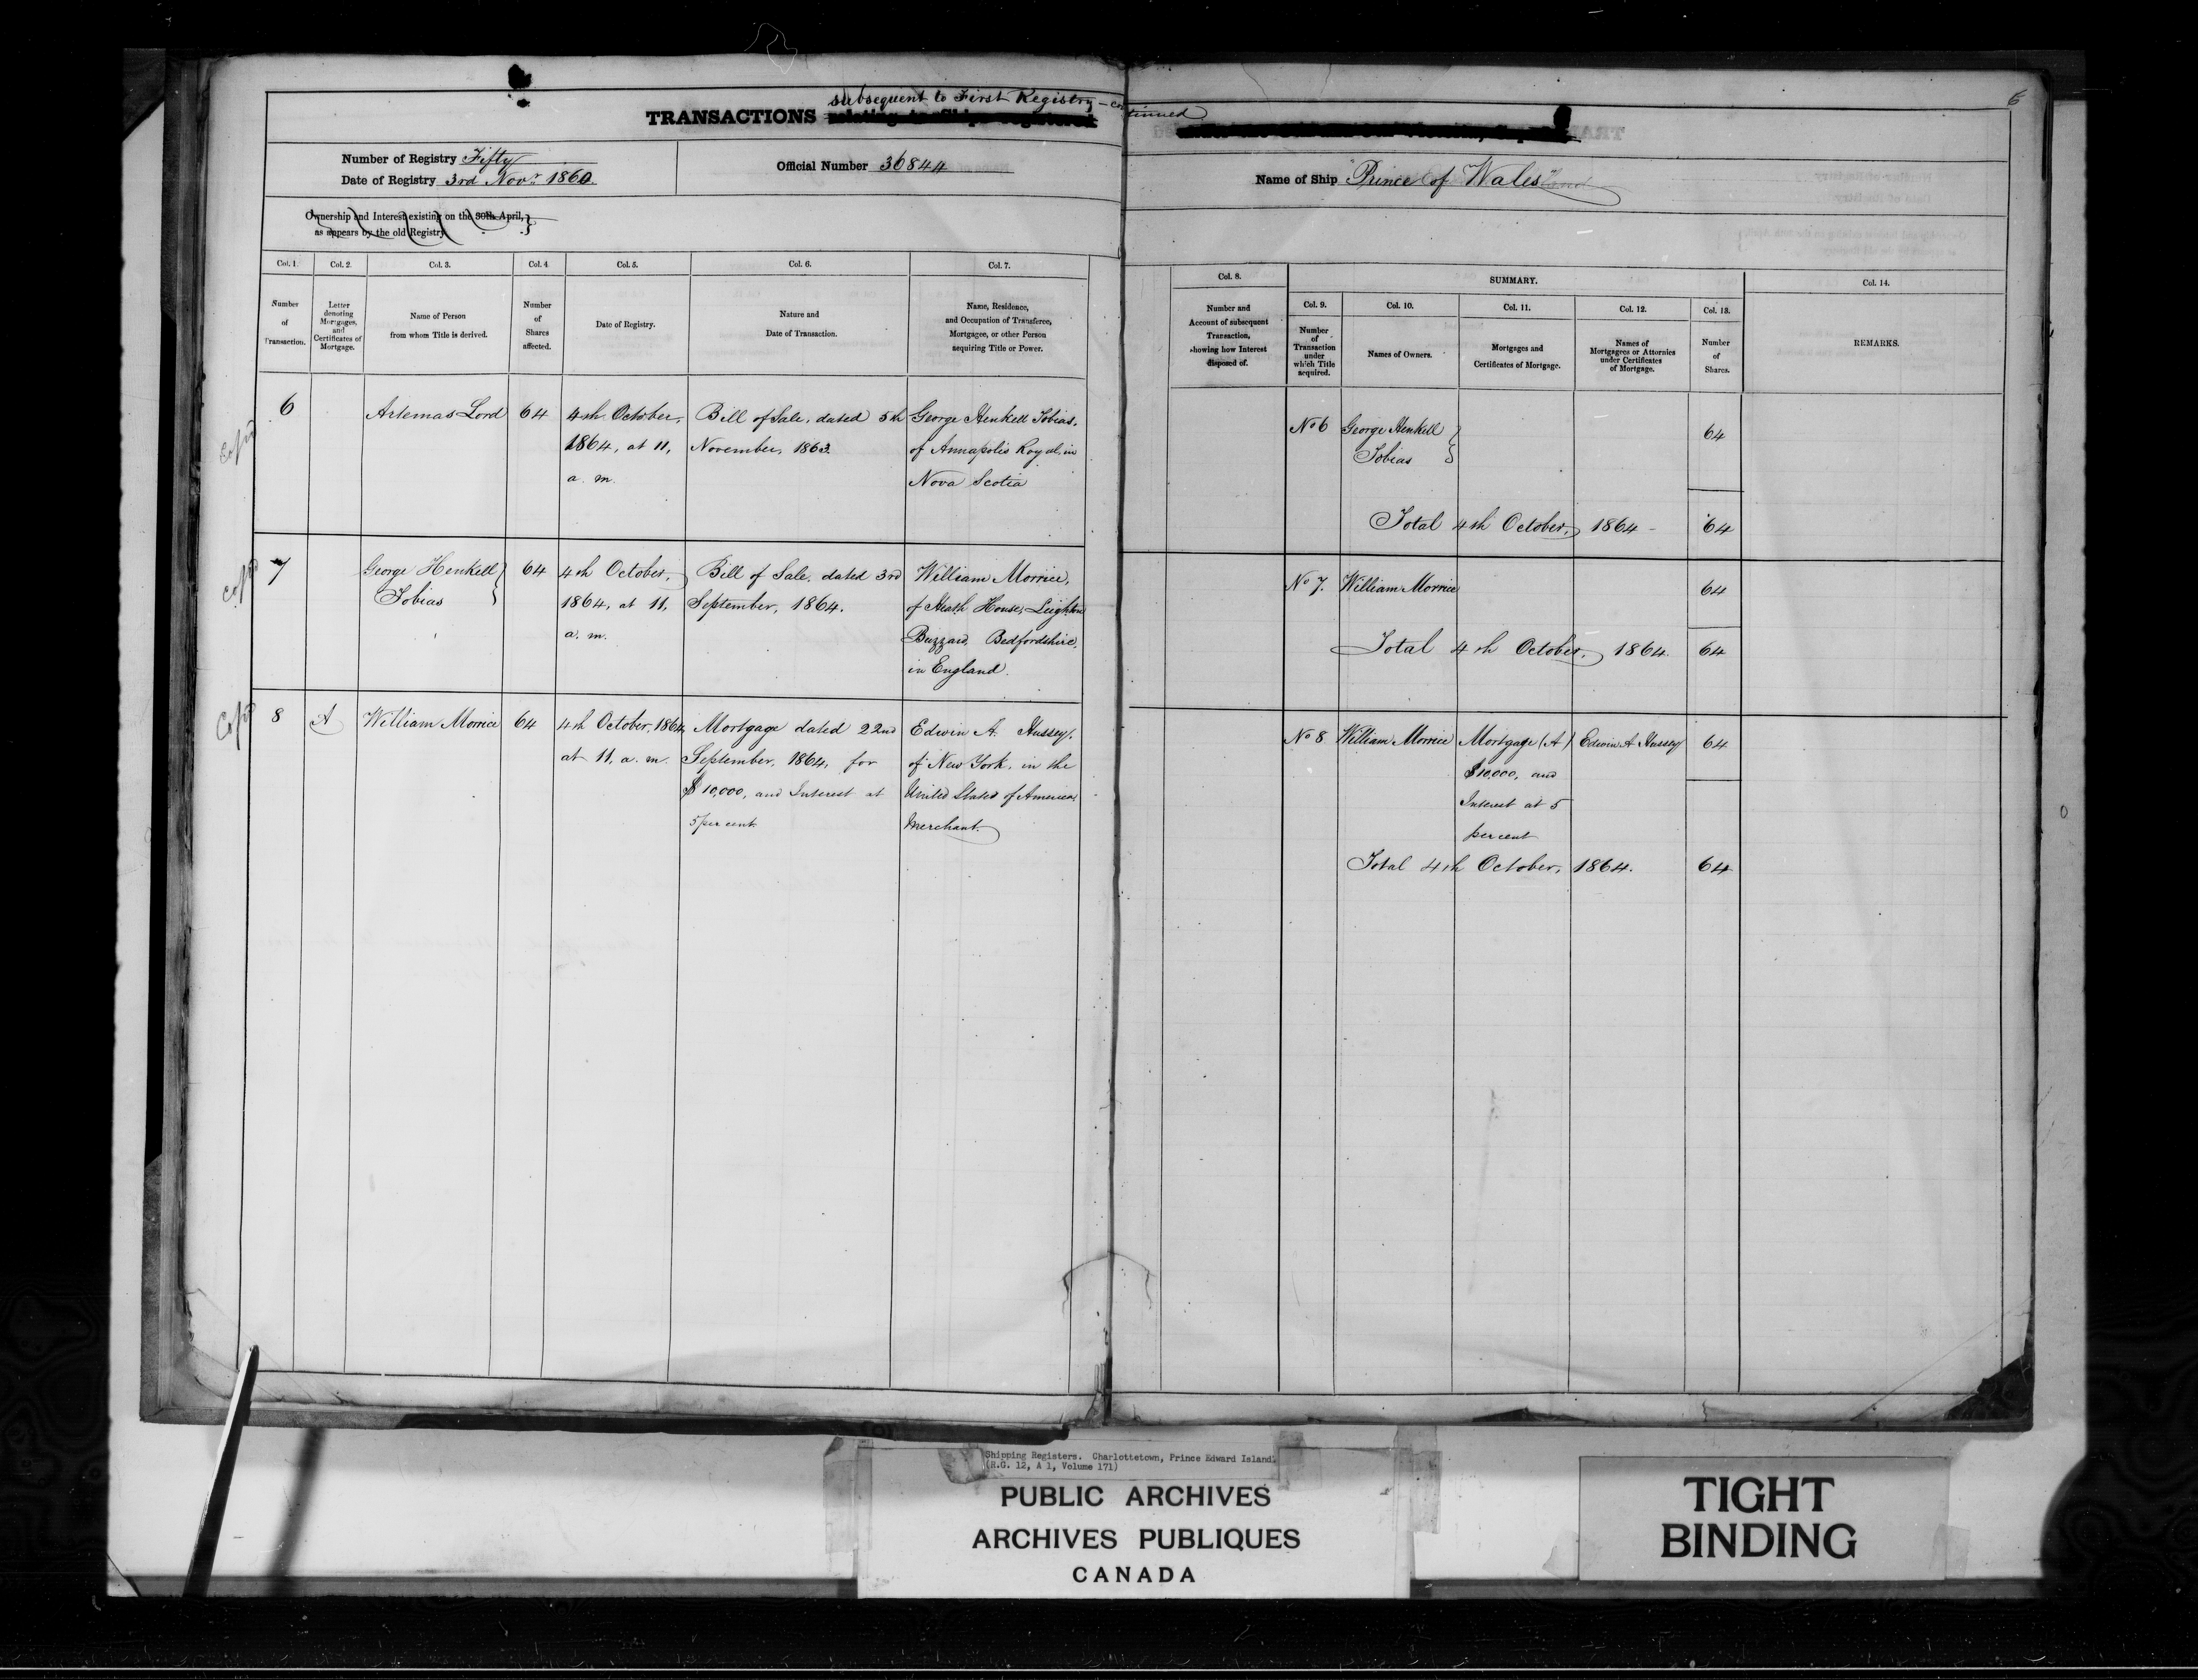 6
subsequent to First Registry – continued
TRANSACTIONS relating to Ships registered
Number of Registry Fifty
Date of Registry 3rd Novr. 1860.
Official Number 36844
Name of Ship "Prince of Wales"
Ownership and Interest existing on the 30th April,
as appears by the old Registry
Col. 1. Col. 2. Col. 3. Col. 4 Col. 5. Col. 6. Col. 7.
Number of Transaction.
Letter denoting Mortgages, and Certificates of Mortgage.
Name of Person from whom Title is derived.
Number of Shares affected.
Date of Registry.
Nature and Date of Transaction.
Name, Residence, and Occupation of Transferee, Mortgagee, or other Person acquiring Title or Power.
Col. 8. SUMMARY. Col. 14.
Col. 9. Col. 10. Col. 11. Col. 12. Col. 13.
Number and Account of subsequent Transaction, showing how Interest disposed of.
Number of Transaction under which Title acquired.
Names of Owners.
Mortgages and Certificates of Mortgage.
Names of Mortgagees or Attornies under Certificates of Mortgage.
Number of Shares.
REMARKS.
6
Artemas Lord
64
4th October,
1864, at 11,
a. m.
Bill of Sale, dated 5th
November, 1863.
George Henkell Tobias,
of Annapolis Royal, in
Nova Scotia
No 6
George Henkell
Tobias
64
Total 4th October, 1864 - 64
7
George Henkell
Tobias
64
4th October,
1864, at 11,
a. m.
Bill of Sale, dated 3rd
September, 1864.
William Morrice,
of Heath House, Leighton
Buzzard, Bedfordshire,
in England.
No 7. William Morrice 64
Total 4th October, 1864. 64
8
A
William Morrice
64
4th October, 1864,
at 11, a. m.
Mortgage dated 22nd
September, 1864, for
$10,000, and Interest at
5 per cent
Edwin A. Hussey,
of New York, in the
United States of America
Merchant.
No 8 William Morrice
Mortgage (A)
$10,000, and
Interest at 5
per cent
Edwin A Hussey
64
Total 4th October, 1864. 64
Shipping Registers. Charlottetown, Prince Edward Island.
(R.G. 12, A 1, Volume 171)
PUBLIC ARCHIVES
ARCHIVES PUBLIQUES
CANADA
TIGHT
BINDING